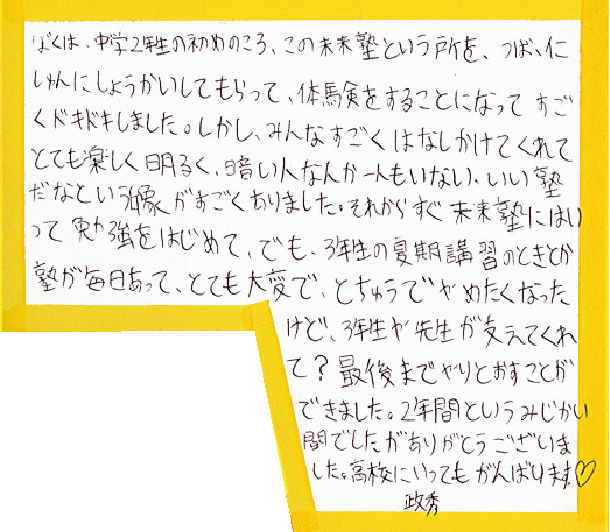 ぼくは、中学2年生の初めのころ、この未来塾という所を、つばいに
しゅんにしょうかいしてもらって、体馬僉をすることになってすご
くドキドキしました。しかし、みんなすごくはなしかけてくれて
とても楽しく明るく、暗い人なんか一人もいない、いい塾
だなという像がすごくありました。それからすぐ未来塾にはい
って勉強をはじめて、でも、3年生の夏期講習のときとか
塾が毎日あって、とても大変で、とちゅうでやめたくなった
けど、3年生や先生が支えてくれ
て?最後までやりとおすことが
できました。2年間というみじかい
間でしたがありがとうございま
した。高校にいってもがんばります♡
政秀